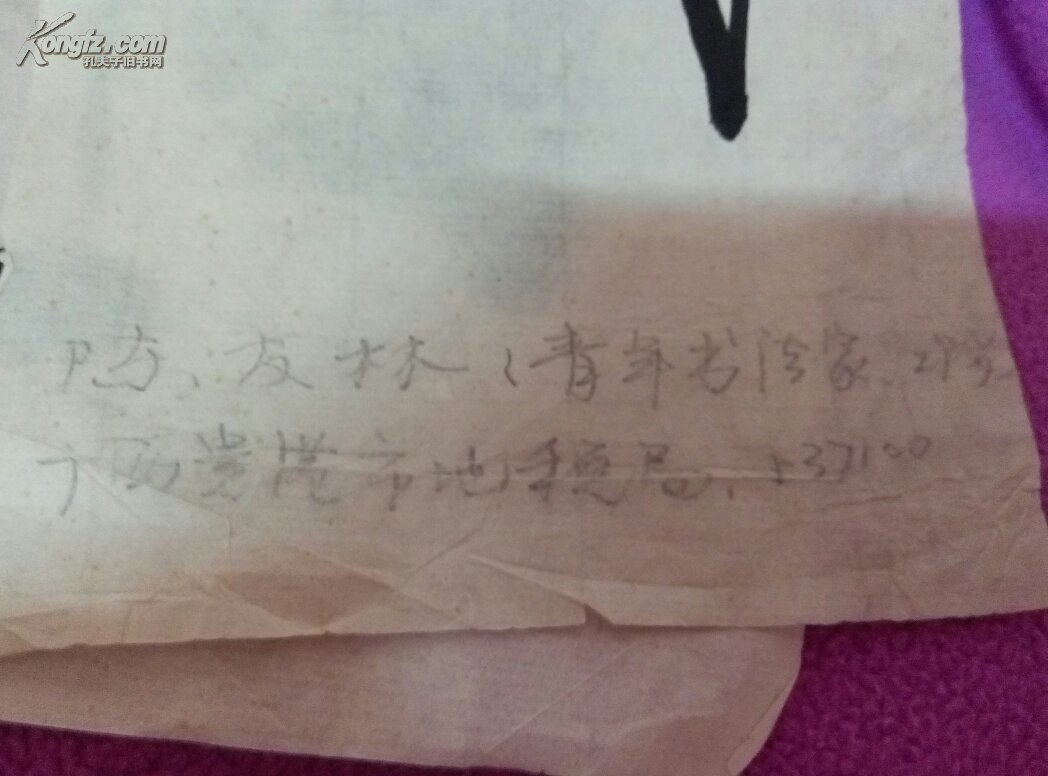 Kongfz.com
孔夫子旧书网
友林、青年书法家、
广西贵港市地税局、537100